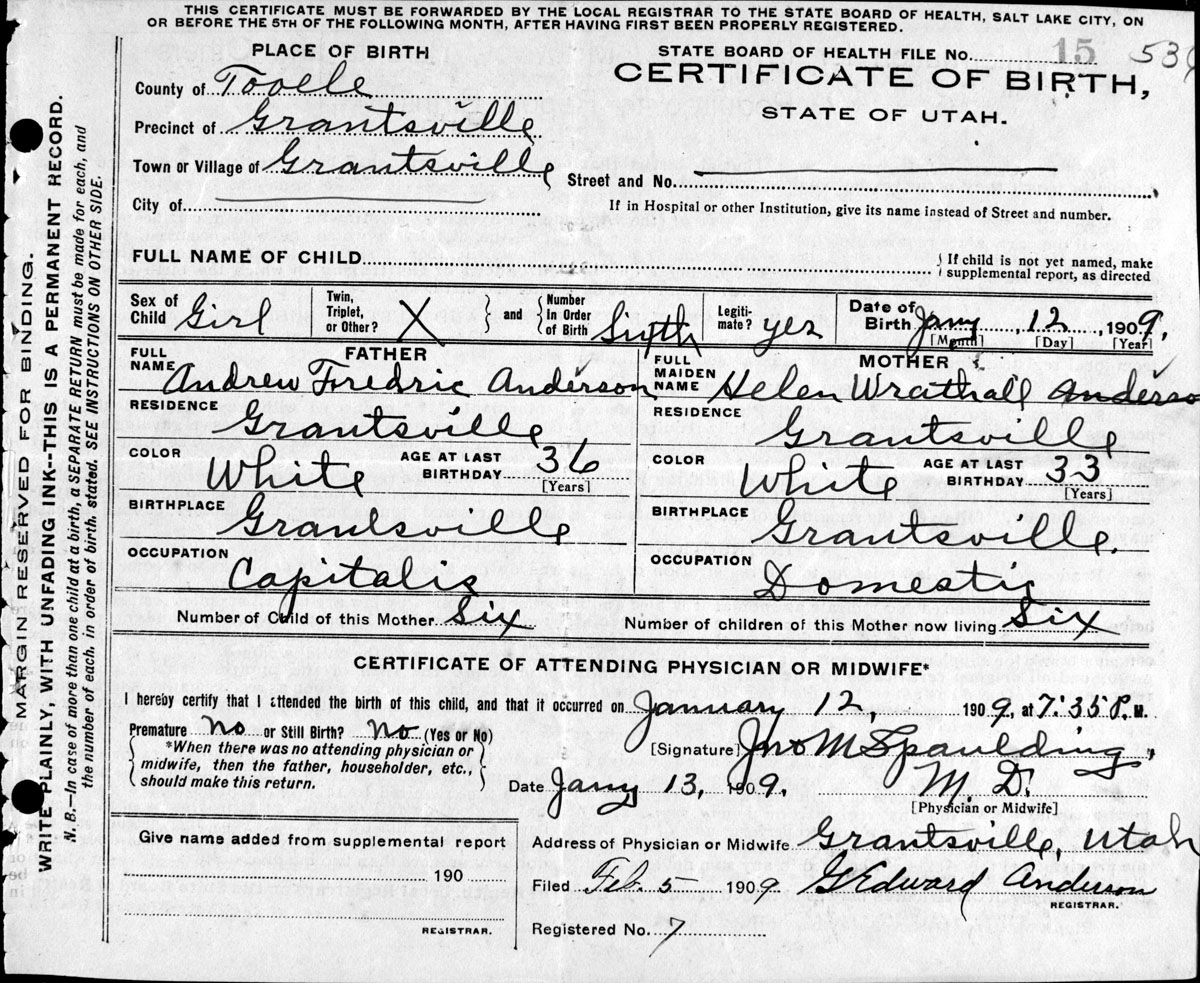 THIS CERTIFICATE MUST BE FORWARDED BY THE LOCAL REGISTRAR TO THE STATE BOARD OF HEALTH, SALT LAKE CITY, ON
OR BEFORE THE 5TH OF THE FOLLOWING MONTH, AFTER HAVING FIRST BEEN PROPERLY REGISTERED.
MARGIN RESERVED FOR BINDING.
WRITE PLAINLY, WITH UNFADING INK--THIS IS A PERMANENT RECORD.
N. B.—In case of more than one child at a birth, a SEPARATE RETURN must be made for each, and
the number of each, in order of birth, stated. SEE INSTRUCTIONS ON OTHER SIDE.
PLACE OF BIRTH
County of Tooele
Precinct of Grantsville
Town or Village of Grantsville
City of
STATE BOARD OF HEALTH FILE No. 15 539
CERTIFICATE OF BIRTH,
STATE OF UTAH.
Street and No.
If in Hospital or other Institution, give its name instead of Street and number.
FULL NAME OF CHILD
If child is not yet named, make
supplemental report, as directed
Sex of Child Girl
Twin, Triplet, or Other? X
and
Number In Order of Birth Sixth
Legiti-mate? yes
Date of Birth Jany 12, 1909.
[Month] [Day] [Year]
FATHER
FULL NAME Andrew Fredric Anderson
RESIDENCE Grantsville
COLOR White AGE AT LAST BIRTHDAY 36
[Years]
BIRTHPLACE Grantsville
OCCUPATION Capitalis
MOTHER
FULL MAIDEN NAME Helen Wrathall Anderso
RESIDENCE Grantsville
COLOR White AGE AT LAST BIRTHDAY 33
[Years]
BIRTHPLACE Grantsville.
OCCUPATION Domestic
Number of Child of this Mother Six
Number of children of this Mother now living Six
CERTIFICATE OF ATTENDING PHYSICIAN OR MIDWIFE*
I hereby certify that I attended the birth of this child, and that it occurred on January 12, 1909, at 7:35 P. M.
Premature? No or Still Birth? No (Yes or No)
*When there was no attending physician or
midwife, then the father, householder, etc.,
should make this return.
[Signature] Jno M Spaulding,
M. D.
[Physician or Midwife]
Date Jany 13, 1909.
Give name added from supplemental report
190
REGISTRAR.
Address of Physician or Midwife Grantsville, Utah
Filed Feb. 5 1909 G Edward Anderson
REGISTRAR.
Registered No. 7